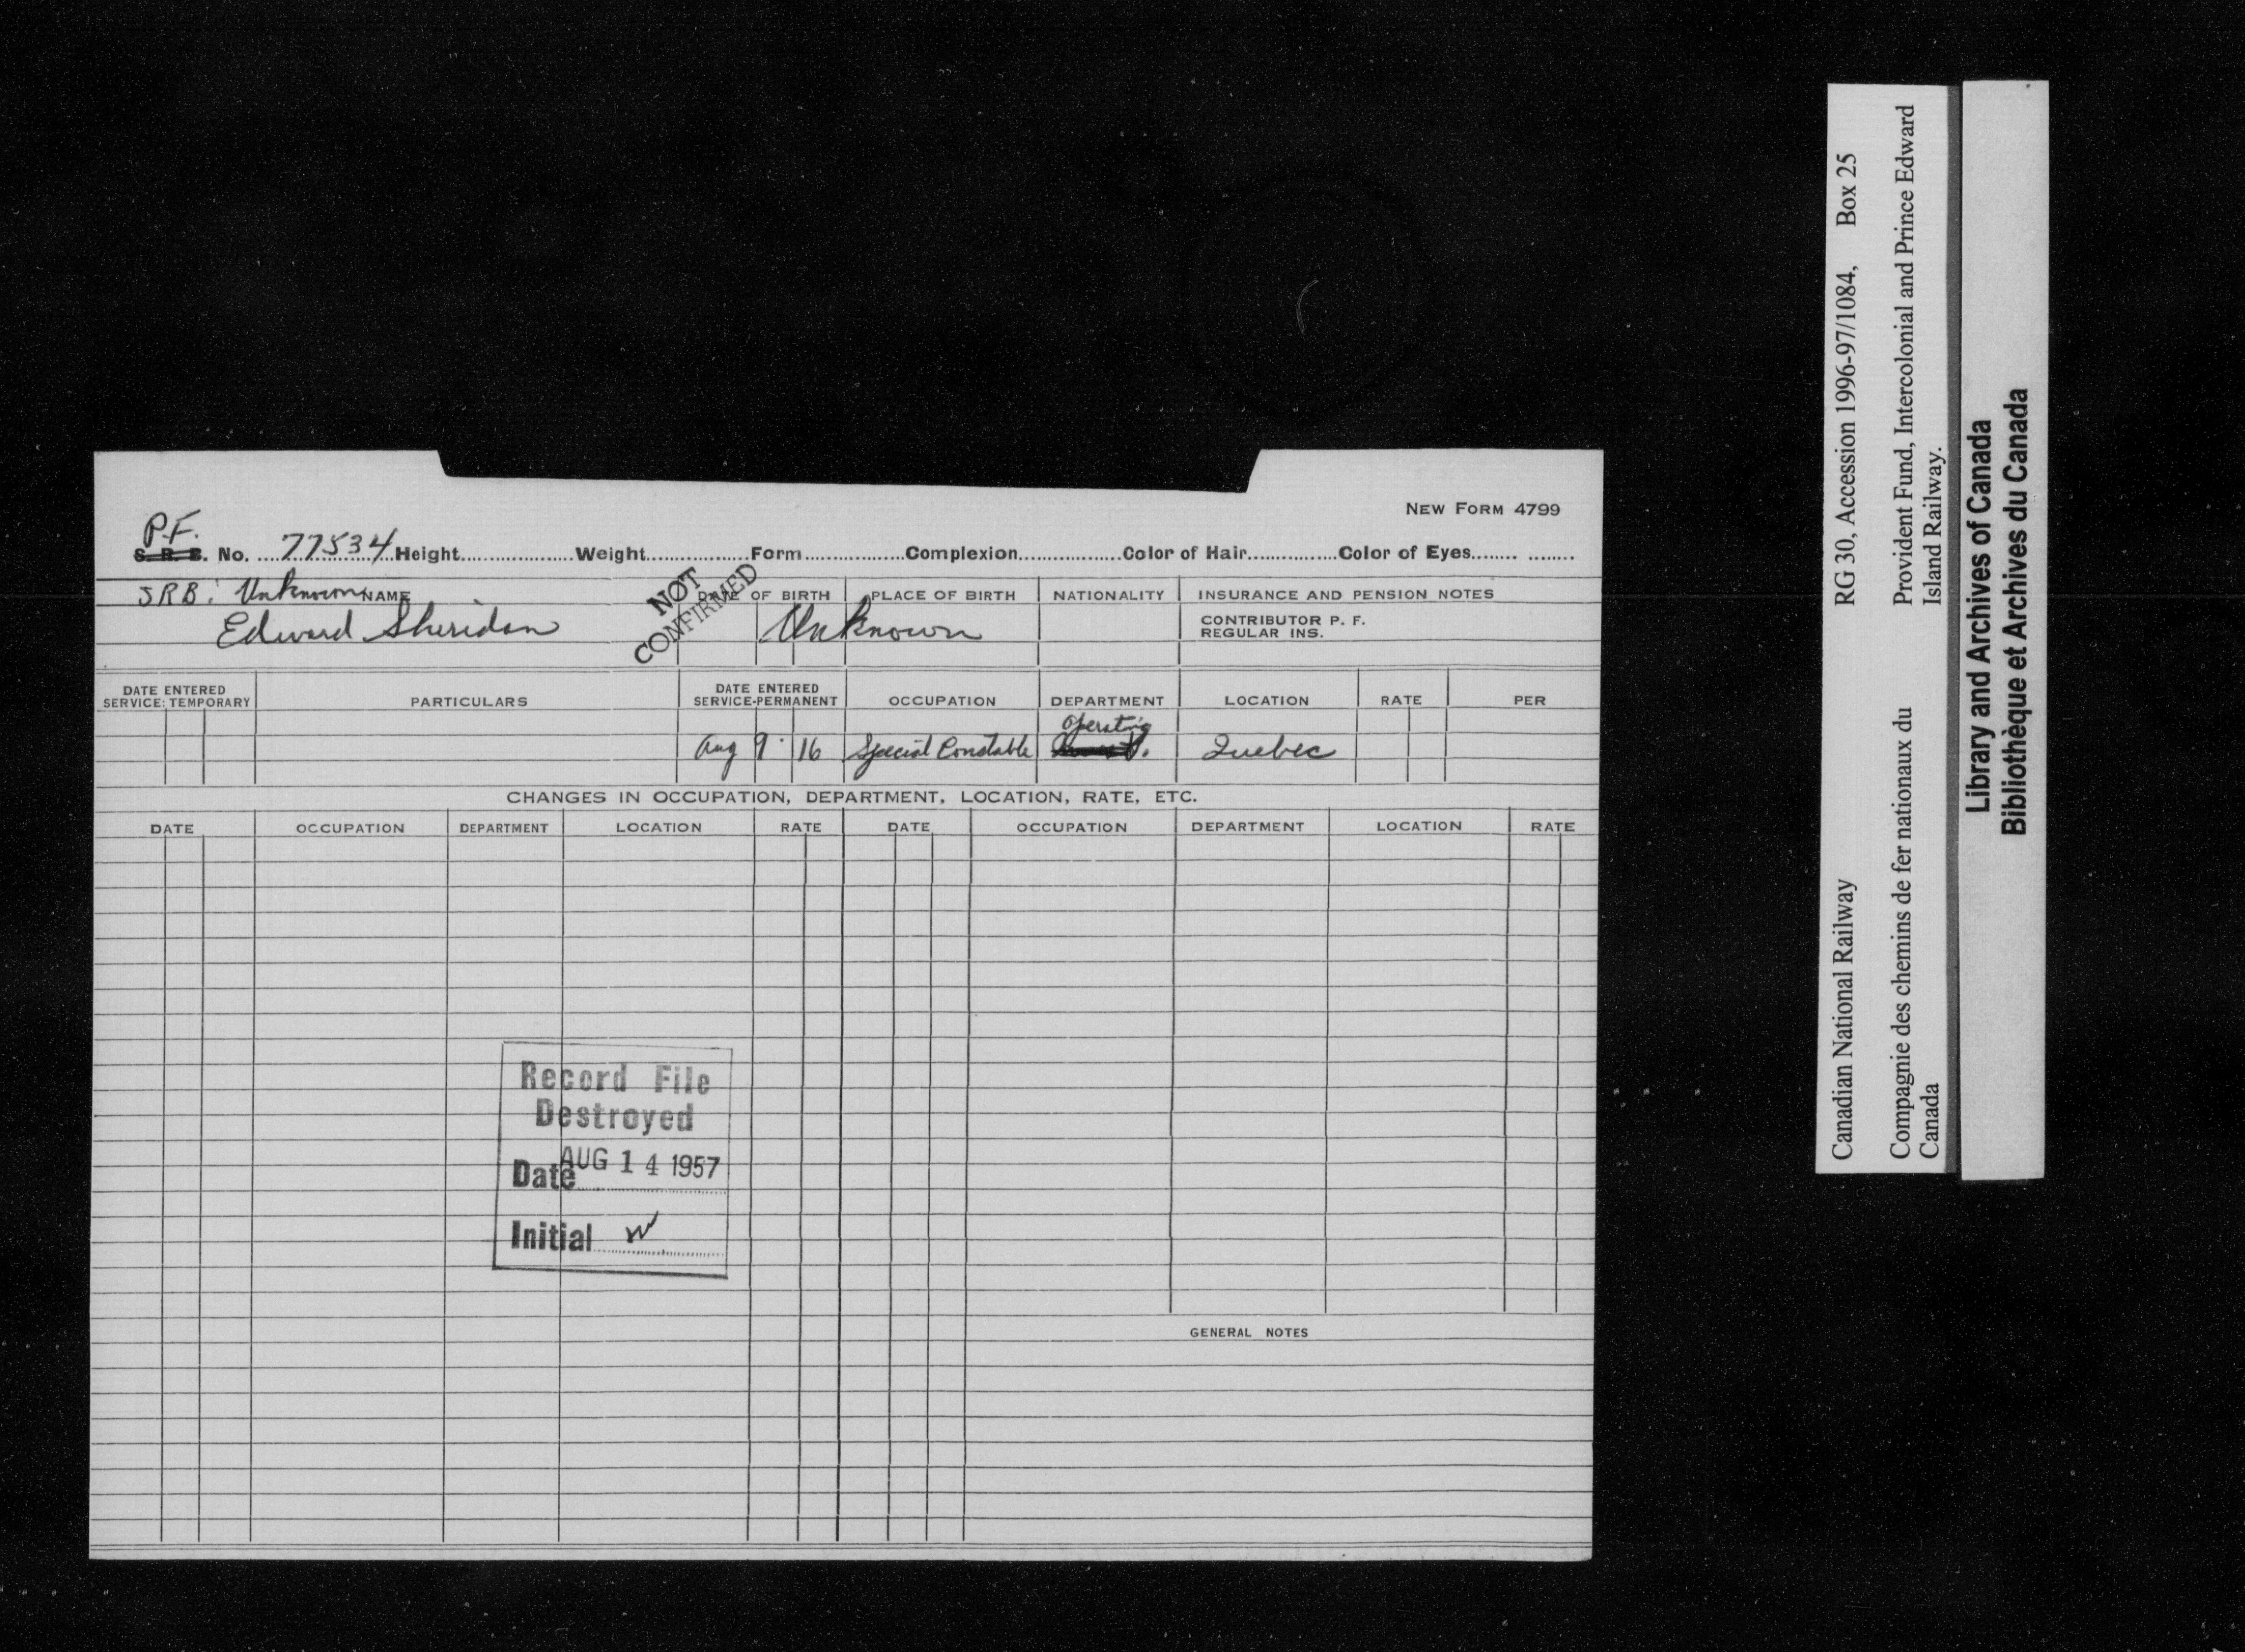 NEW FORM 4799
P.F.
S. R. B. No. 77534 Height Weight Form Complexion Color of Hair Color of Eyes
SRB: Unknown NAME DATE OF BIRTH PLACE OF BIRTH NATIONALITY INSURANCE AND PENSION NOTES
NOT
CONFIRMED
Edward Sheridan Unknown CONTRIBUTOR P. F.
REGULAR INS.
DATE ENTERED
SERVICE: TEMPORARY PARTICULARS DATE ENTERED
SERVICE-PERMANENT OCCUPATION DEPARTMENT LOCATION RATE PER
Operating
Aug 9 16 Special Constable Quebec
CHANGES IN OCCUPATION, DEPARTMENT, LOCATION, RATE, ETC.
DATE OCCUPATION DEPARTMENT LOCATION RATE DATE OCCUPATION DEPARTMENT LOCATION RATE
Record File
Destroyed
Date AUG 14 1957
Initial W
GENERAL NOTES
Canadian National Railway RG 30, Accession 1996-97/1084, Box 25
Compagnie des chemins de fer nationaux du
Canada
Provident Fund, Intercolonial and Prince Edward
Island Railway.
Library and Archives of Canada
Bibliothèque et Archives du Canada